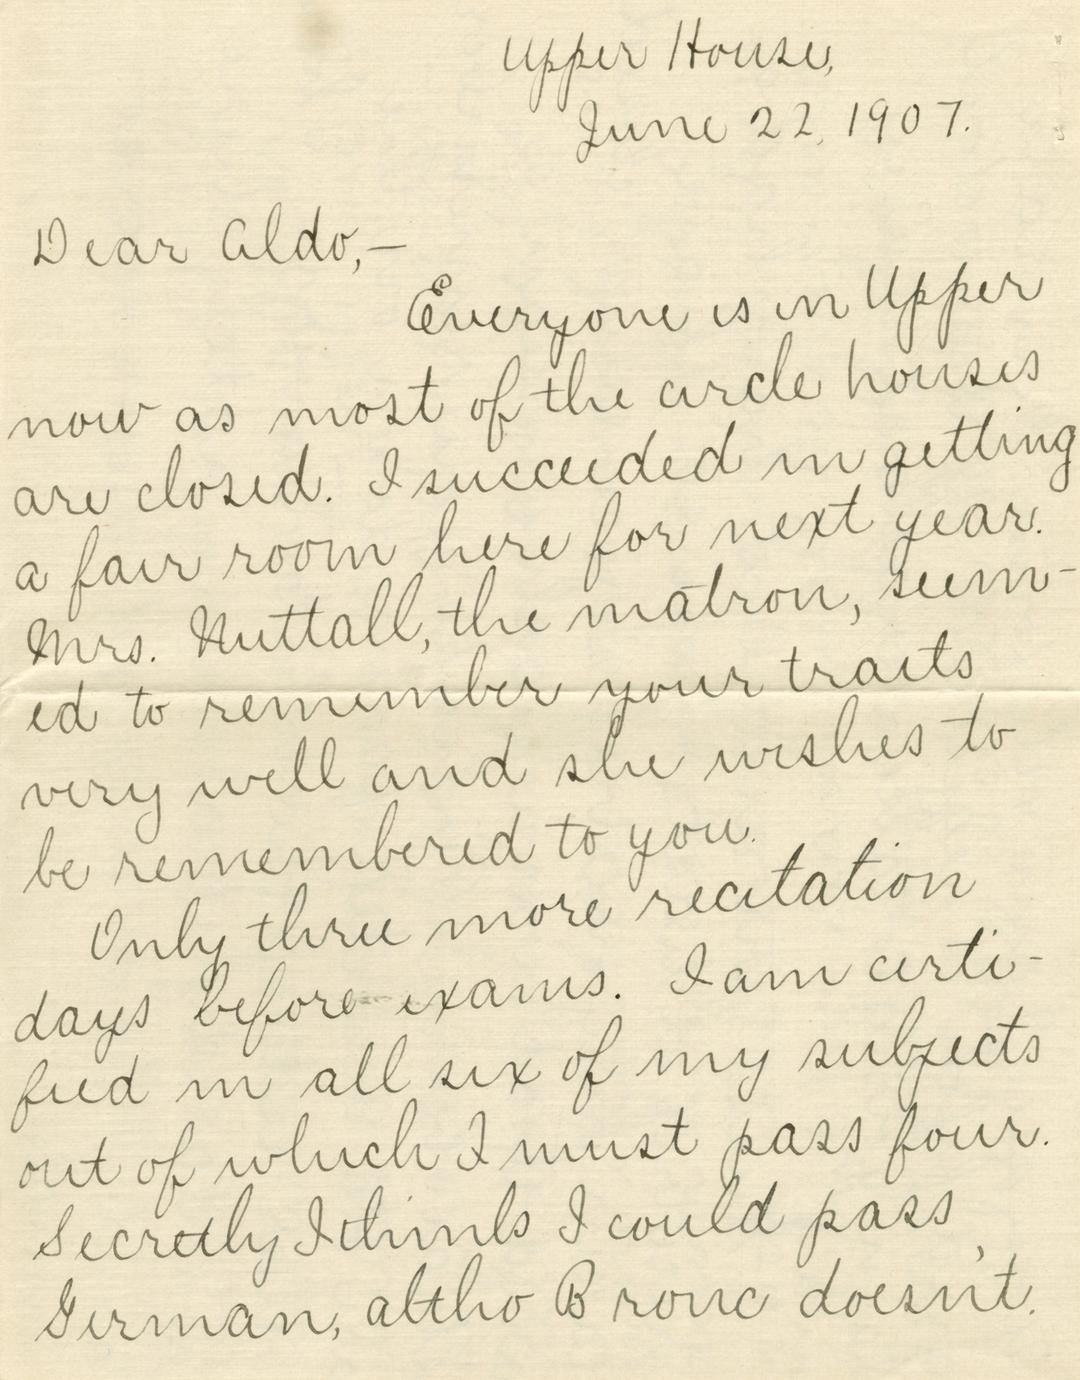 Upper House,
June 22, 1907.
Dear Aldo,—
Everyone is in Upper
now as most of the circle houses
are closed. I succeeded in getting
a fair room here for next year.
Mrs. Nuttall, the matron, seem-
ed to remember your traits
very well and she wishes to
be remembered to you.
Only three more recitation
days before exams. I am certi-
fied in all six of my subjects
out of which I must pass four.
Secretly I think I could pass
German, altho Bronc doesn't.